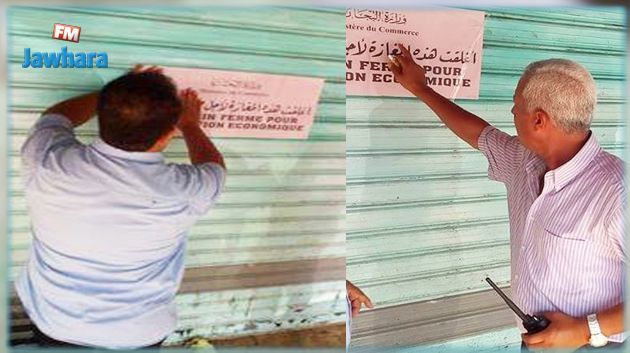 FM
Jawhara
وزارة التجارة
أغلقت هذه المغازة لأجل
IN FERME POUR
TION ECONOMIQUE
وزارة التجا
Ministère du Commerce
أغلقت هذه المغازة لأجل
IN FERME POUR
TION ECONOMIQUE